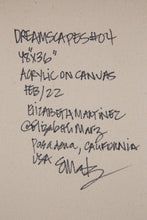 DREAMSCAPES #04
48"X36"
ACRYLIC ON CANVAS
FEB/22
ELIZABETH MARTINEZ
@Elizabethmarz
Pasadena, CALIFORNIA
USA